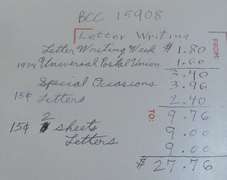 BCC 15908
Letter Writing
FROM:
Letter Writing Week $ 1.80
1974 Universal Postal Union 1.60
3.40
Special Occasions 3.96
15¢ Letters 2.40
TO:
2 9.76
15¢ sheets 9.00
Letters 9.00
$ 27.76